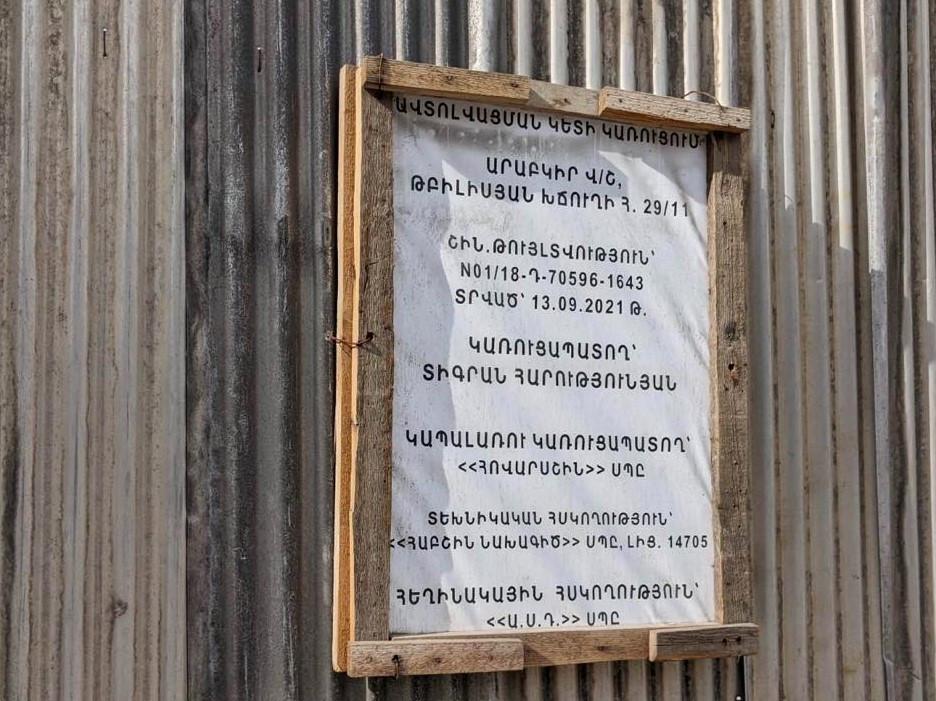 ԱՎՏՈԼՎԱՑՄԱՆ ԿԵՏԻ ԿԱՌՈՒՑՈՒՄ
ԱՐԱԲԿԻՐ Վ/Շ,
ԹԲԻԼԻՍՅԱՆ ԽՃՈՒՂԻ Հ. 29/11
ՇԻՆ.ԹՈՒՅԼՏՎՈՒԹՅՈՒՆ՝
N01/18-Դ-70596-1643
ՏՐՎԱԾ՝ 13.09.2021 Թ.
ԿԱՌՈՒՑԱՊԱՏՈՂ՝
ՏԻԳՐԱՆ ՀԱՐՈՒԹՅՈՒՆՅԱՆ
ԿԱՊԱԼԱՌՈՒ ԿԱՌՈՒՑԱՊԱՏՈՂ՝
<<ՀՈՎԱՐՍՇԻՆ>> ՍՊԸ
ՏԵԽՆԻԿԱԿԱՆ ՀՍԿՈՂՈՒԹՅՈՒՆ՝
<<ՀԱԲՇԻՆ ՆԱԽԱԳԻԾ>> ՍՊԸ, ԼԻՑ. 14705
ՀԵՂԻՆԱԿԱՅԻՆ ՀՍԿՈՂՈՒԹՅՈՒՆ՝
<<Ա.Ս.Դ.>> ՍՊԸ